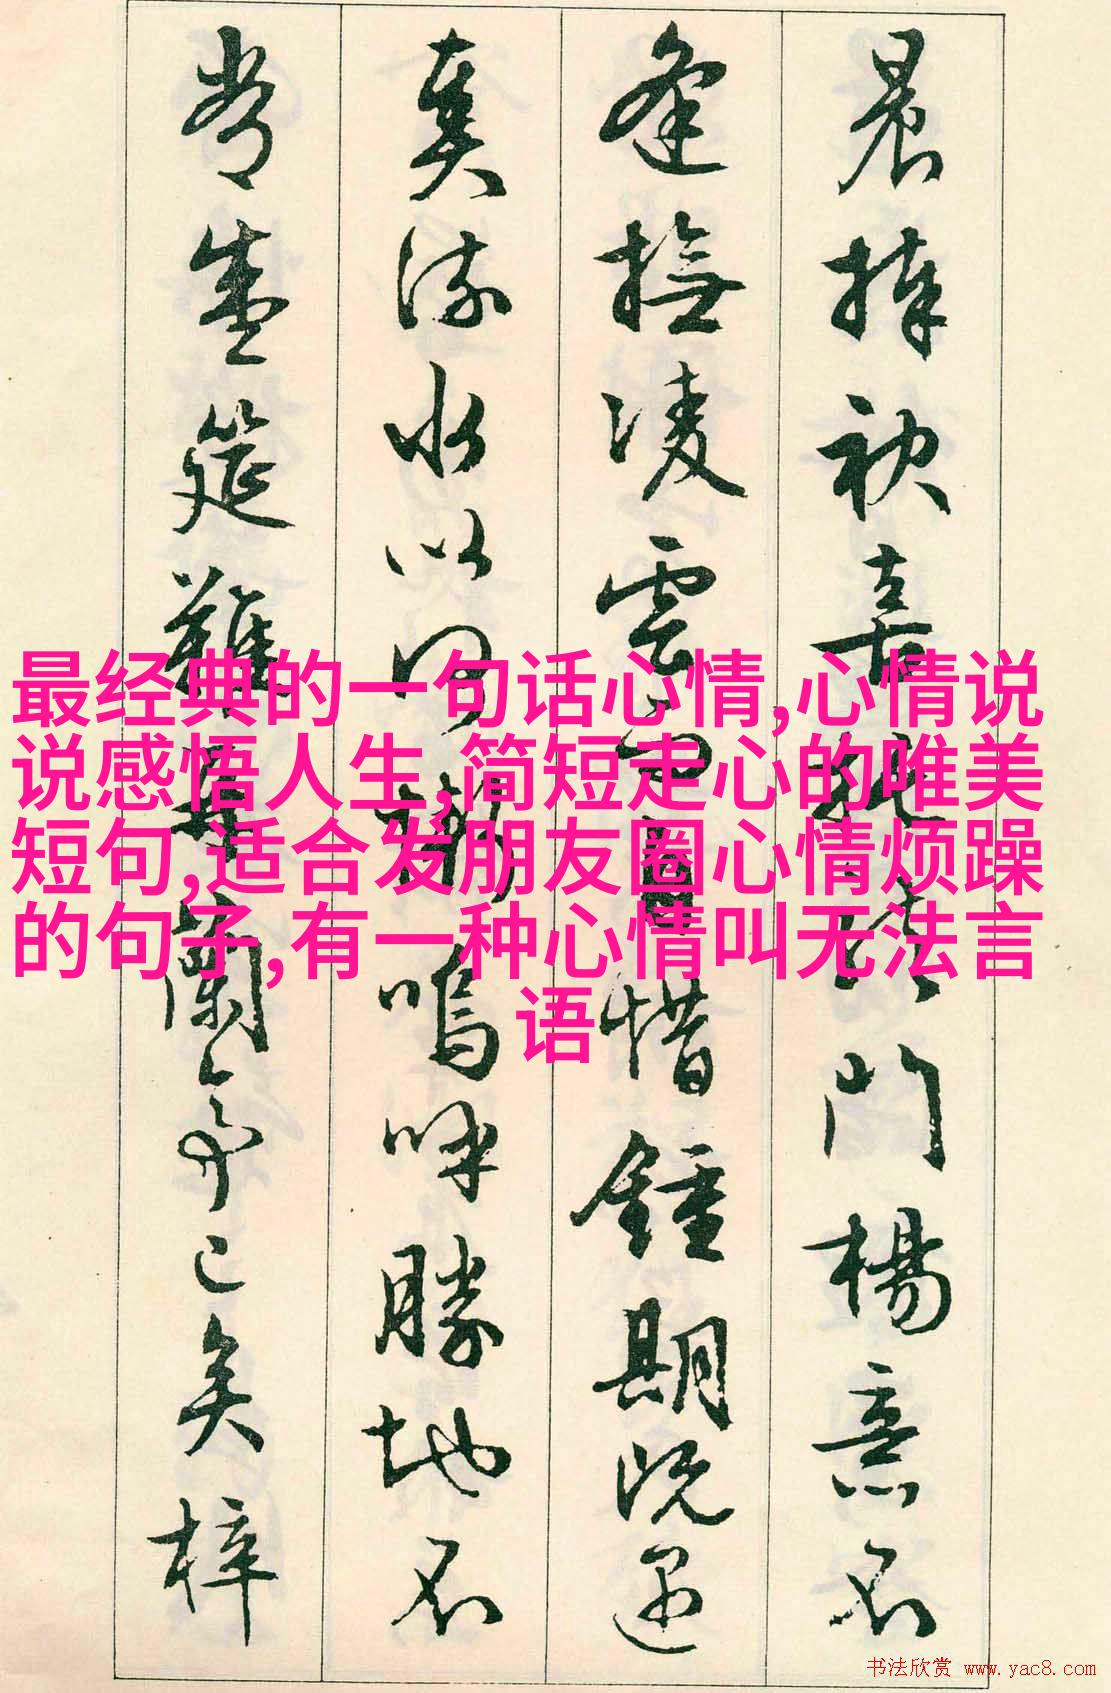 晨捧袂喜門楊意不
逢撫凌雲而自惜鍾期既遇
奏流水以何慚嗚呼勝地不
常盛筵難再蘭亭已矣梓
最经典的一句话心情,心情说
说感悟人生,简短走心的唯美
短句,适合发朋友圈心情烦躁
的句子,有一种心情叫无法言
语
书法欣赏 www.yac8.com